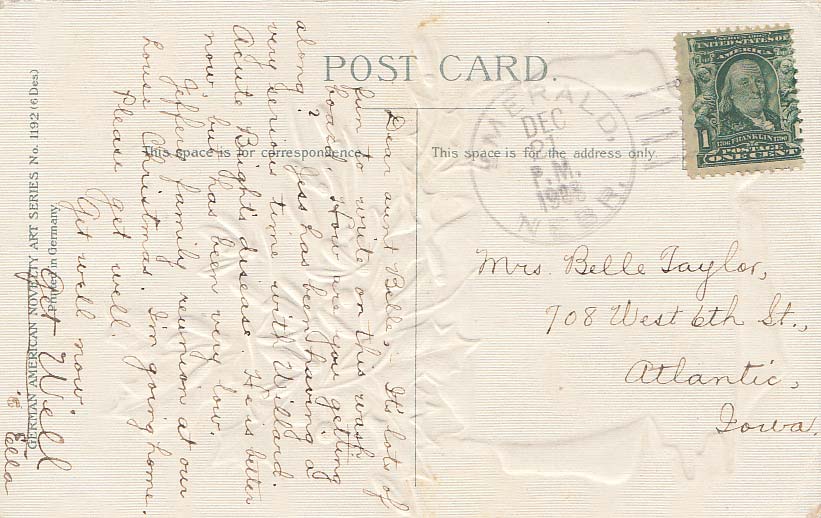 POST CARD.
This space is for correspondence
This space is for the address only.
GERMAN AMERICAN NOVELTY ART SERIES No. 1192 (6 Des)
Printed in Germany
UNITED STATES OF AMERICA
1
FRANKLIN
POSTAGE
ONE CENT
EMERALD,
DEC
P.M.
1908
NEBR.
Dear aunt Belle, It's lots of
fun to write on this wash
board. How are you getting
along? Jess has been having a
very serious time with Willard.
Acute Bright's disease. He is better
now, but has been very low.
Jeffers family reunion at our
house Christmas. I'm going home.
Please get well.
Get well now.
Get Well
Ella
Mrs. Belle Taylor,
708 West 6th St.,
Atlantic,
Iowa.